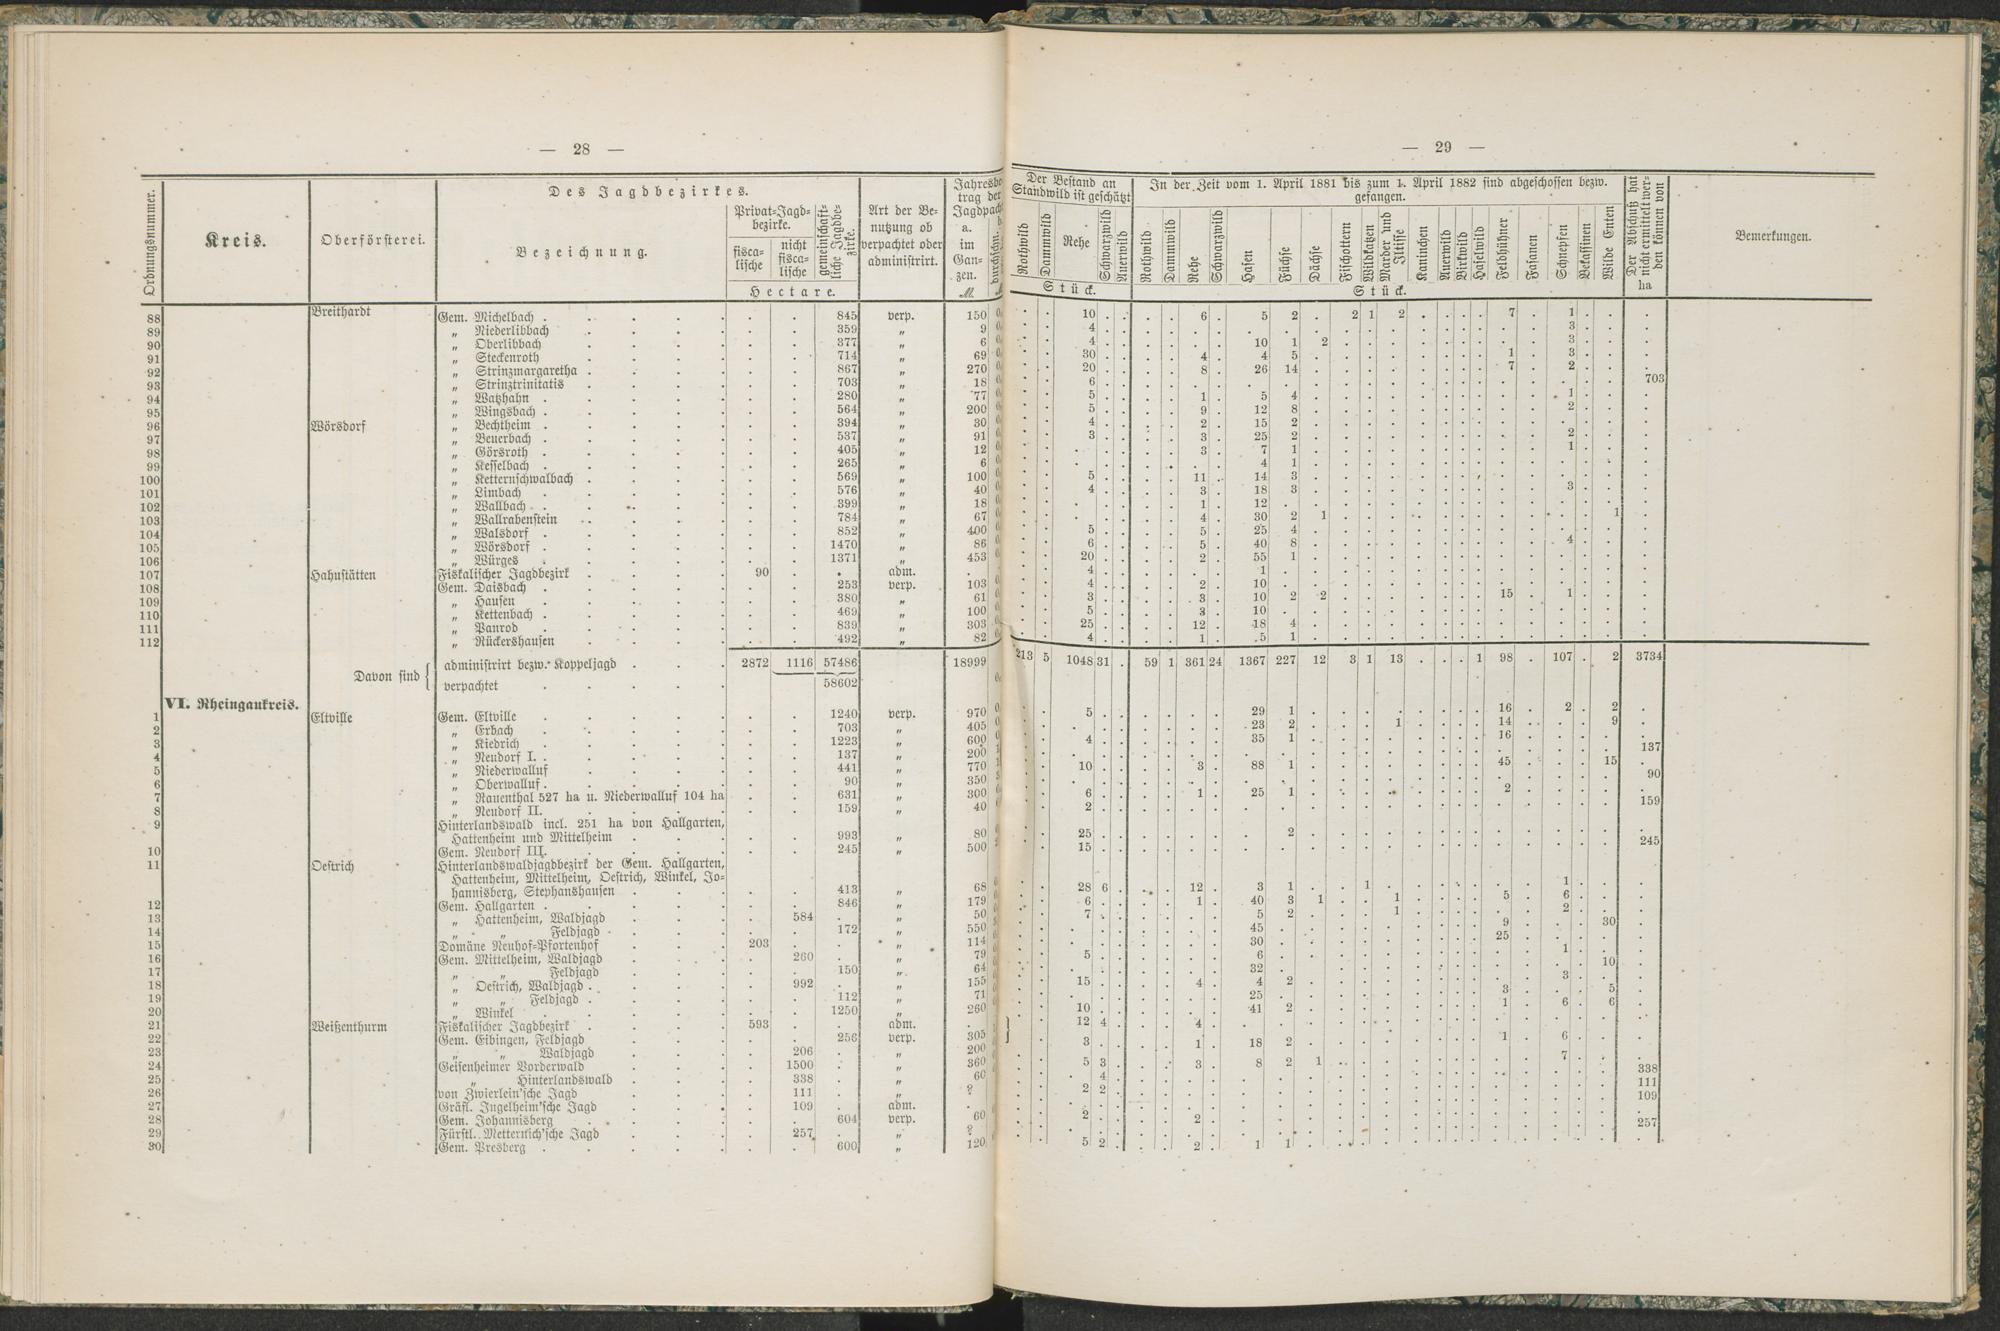 — 28 —
Ordnungsnummer.
Kreis.
Oberförsterei.
Des Jagdbezirkes.
Bezeichnung.
Privat-Jagd-
bezirke.
fisca-
lische
nicht
fisca-
lische
gemeinschaft-
liche Jagdbe-
zirke.
Hectare.
Art der Be-
nutzung ob
verpachtet oder
administrirt.
Jahresbe
trag der
Jagdpach
a.
im
Gan-
zen.
M.
88 Breithardt Gem. Michelbach . 845 verp. 150
89 „ Niederlibbach 359 „ 9
90 „ Oberlibbach 377 „ 6
91 „ Steckenroth 714 „ 69
92 „ Strinzmargaretha . 867 „ 270
93 „ Strinztrinitatis 703 „ 18
94 „ Watzhahn . 280 „ 77
95 „ Wingsbach . 564 „ 200
96 Wörsdorf „ Bechtheim . 394 „ 30
97 „ Beuerbach . 537 „ 91
98 „ Görsroth . 405 „ 12
99 „ Kesselbach . 265 „ 6
100 „ Ketternschwalbach . 569 „ 100
101 „ Limbach . 576 „ 40
102 „ Wallbach . 399 „ 18
103 „ Wallrabenstein 784 „ 67
104 „ Walsdorf . 852 „ 400
105 „ Wörsdorf . 1470 „ 86
106 „ Würges . 1371 „ 453
107 Hahnstätten Fiskalischer Jagdbezirk . 90 . . adm. .
108 Gem. Daisbach . 253 verp. 103
109 „ Hausen . 380 „ 61
110 „ Kettenbach . 469 „ 100
111 „ Panrod . 839 „ 303
112 „ Rückershausen 492 „ 82
Davon sind { administrirt bezw. Koppeljagd . 2872 1116 57486 18999
verpachtet . 58602
VI. Rheingaukreis.
1 Eltville Gem. Eltville . 1240 verp. 970
2 „ Erbach . 703 „ 405
3 „ Kiedrich . 1223 „ 600
4 „ Neudorf I. . 137 „ 200
5 „ Niederwalluf . 441 „ 770
6 „ Oberwalluf . 90 „ 350
7 „ Rauenthal 527 ha u. Niederwalluf 104 ha 631 „ 300
8 „ Neudorf II. 159 „ 40
9 Hinterlandswald incl. 251 ha von Hallgarten,
Hattenheim und Mittelheim . 993 „ 80
10 Gem. Neudorf III. 245 „ 500
11 Oestrich Hinterlandswaldjagdbezirk der Gem. Hallgarten,
Hattenheim, Mittelheim, Oestrich, Winkel, Jo-
hannisberg, Stephanshausen . 413 „ 68
12 Gem. Hallgarten . 846 „ 179
13 „ Hattenheim, Waldjagd 584 . „ 50
14 „ „ Feldjagd . 172 „ 550
15 Domäne Neuhof-Pfortenhof 203 . . „ 114
16 Gem. Mittelheim, Waldjagd 260 . „ 79
17 „ „ Feldjagd 150 „ 64
18 „ Oestrich, Waldjagd . 992 . „ 155
19 „ „ Feldjagd . 112 „ 71
20 „ Winkel . 1250 „ 260
21 Weißenthurm Fiskalischer Jagdbezirk . 593 . . adm. .
22 Gem. Eibingen, Feldjagd 256 verp. 305
23 „ „ Waldjagd 206 . „ 200
24 Geisenheimer Vorderwald 1500 . „ 360
25 „ Hinterlandswald 338 . „ 60
26 von Zwierlein'sche Jagd 111 . „ ?
27 Gräfl. Ingelheim'sche Jagd 109 . adm. .
28 Gem. Johannisberg 604 verp. 60
29 Fürstl. Metternich'sche Jagd 257 . „ ?
30 Gem. Presberg . 600 „ 120
— 29 —
Der Bestand an
Standwild ist geschätzt
Rothwild
Dammwild
Rehe
Schwarzwild
Auerwild
Stück.
In der Zeit vom 1. April 1881 bis zum 1. April 1882 sind abgeschossen bezw.
gefangen.
Rothwild
Dammwild
Rehe
Schwarzwild
Hasen
Füchse
Dächse
Fischottern
Wildkatzen
Marder und
Iltisse
Kaninchen
Auerwild
Birkwild
Haselwild
Feldhühner
Fasanen
Schnepfen
Bekassinen
Wilde Enten
Stück.
Der Abschuß hat
nicht ermittelt wer-
den können von
ha
Bemerkungen.
10 6 5 2 . 2 1 2 7 1
4 3
4 10 1 2 3
30 4 4 5 1 3
20 8 26 14 7 2
6 703
5 1 5 4 1
5 9 12 8 2
4 2 15 2
3 3 25 2 2
3 7 1 1
4 1
5 11 14 3
4 3 18 3 3
1 12
4 30 2 1 1
5 5 25 4
6 5 40 8 4
20 2 55 1
4 1
4 2 10
3 3 10 2 2 15 1
5 3 10
25 12 18 4
4 1 5 1
213 5 1048 31 . 59 1 361 24 1367 227 12 3 1 13 . . . 1 98 . 107 . 2 3734
5 29 1 16 2 2
23 2 1 14 9
4 35 1 16
137
10 3 88 1 45 15
90
6 1 25 1 2
2 159
25 2
15 245
28 6 12 3 1 1 1
6 1 40 3 1 1 5 6
7 5 2 1 2
45 9 30
30 25
5 6 1
32 10
15 4 4 2 3
25 3 5
10 41 2 1 6 6
12 4 4
3 1 18 2 1 6
5 3 3 8 2 1 7
4 338
2 2 111
109
2 2
257
5 2 2 1 1